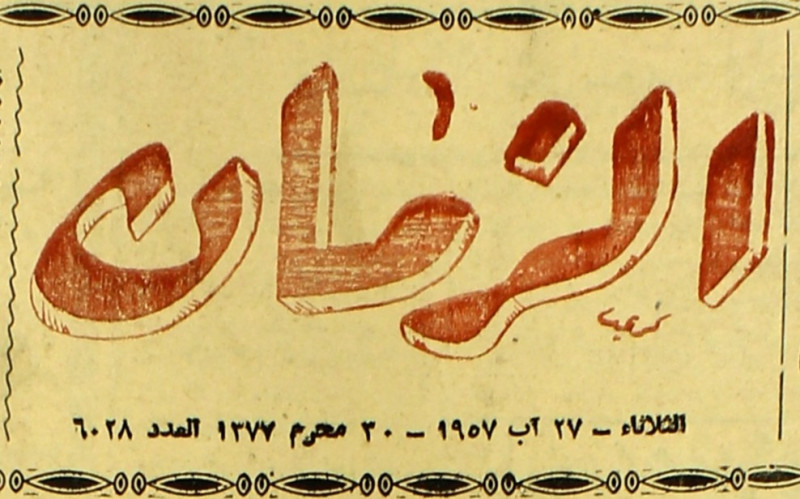 الزمان
الثلاثاء – ٢٧ آب ١٩٥٧ – ٣٠ محرم ١٣٧٧ العدد ٦٠٢٨